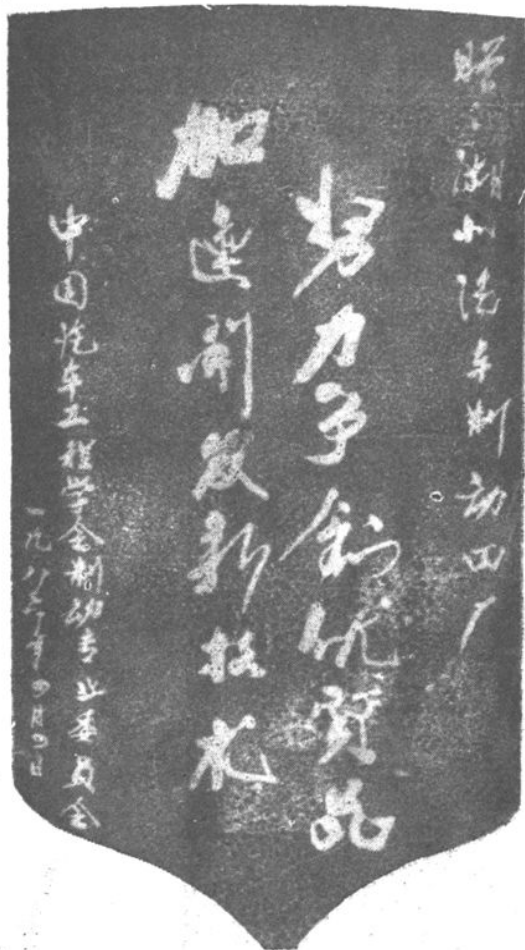 赠：湖州汽车制动四厂
努力争创优质品
加速开发新技术
中国汽车工程学会制动专业委员会
一九八六年四月四日